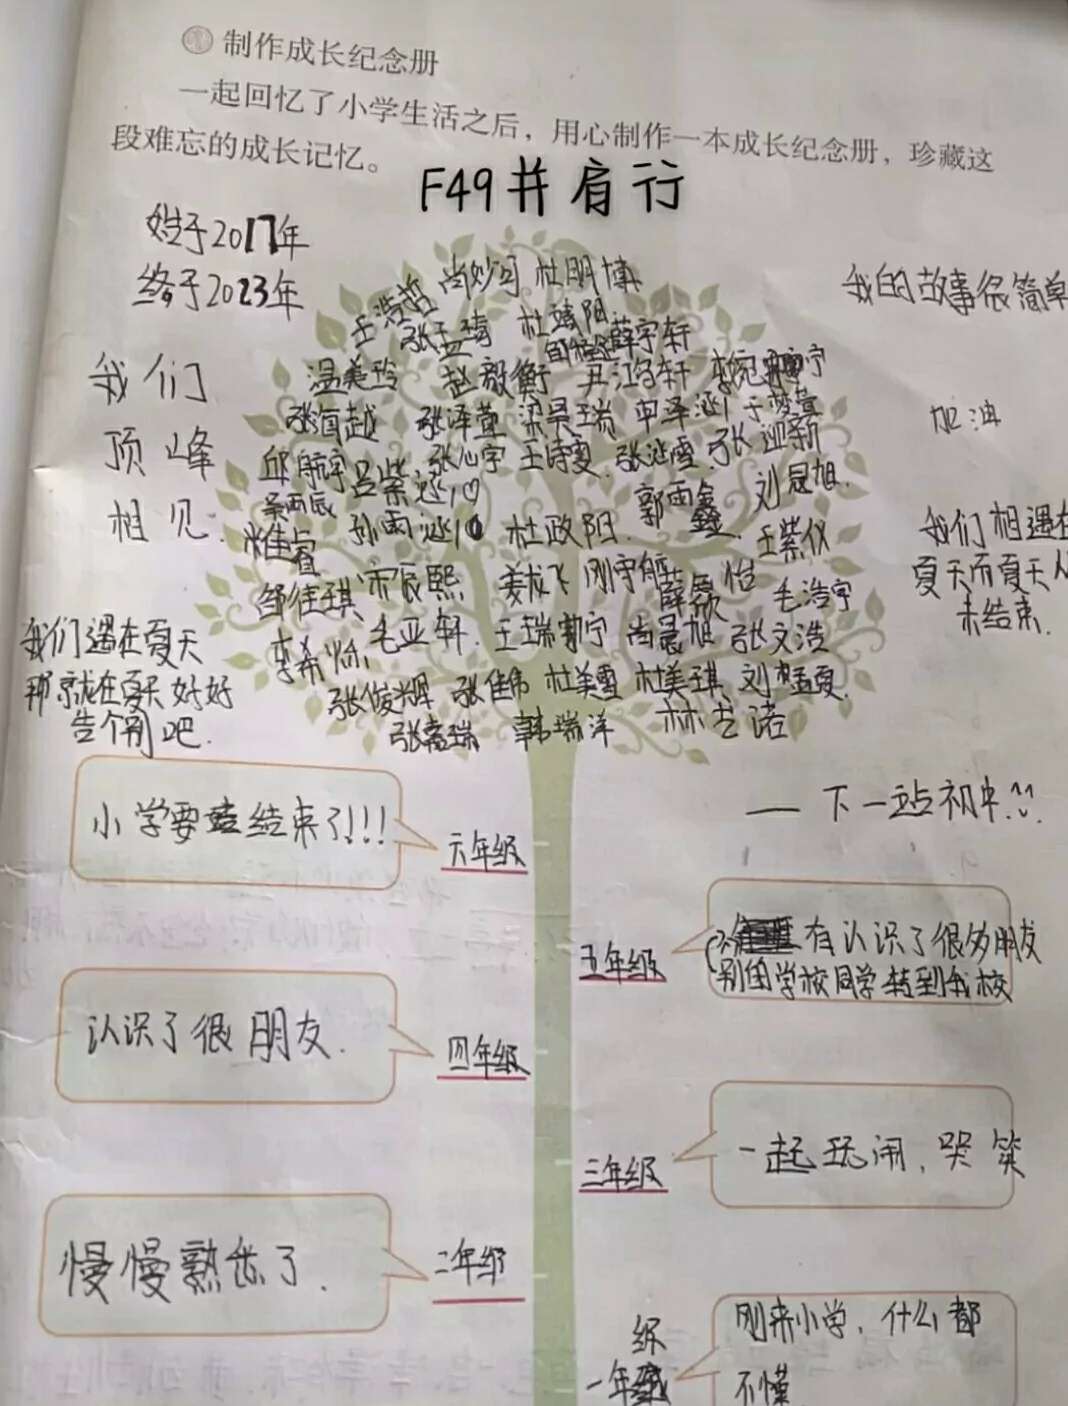 制作成长纪念册
一起回忆了小学生活之后，用心制作一本成长纪念册，珍藏这
段难忘的成长记忆。
F49并肩行
始于2017年
终于2023年
我的故事很简单
我们
顶峰
相见.
加油
我们相遇在
夏天而夏天
未结束.
我们遇在夏天
那就在夏天好好
告个别吧.
王浩哲 尚妙可 杜明博
张孟琦 杜靖阳
薛宇轩
温美玲 赵毅衡 尹鸿轩
张海越 张泽萱 梁昊瑞 申泽
邱航宇 王诗雯 张 迎新
吕紫 郭雨鑫 刘晟旭.
孙雨 杜政阳. 王紫仪
邰佳琪 宋辰熙 姜龙飞 刚宇航 毛浩宇
李希 毛亚轩. 尚晨旭 张文浩
张俊辉 张佳伟 杜美雪 杜美琪 刘孟夏.
张 瑞 韩瑞洋 林艺诺
——下一站初中!!
小学要结束了!!!
六年级
五年级
有认识了很多朋友
别的学校同学转到我校
认识了很 朋友.
四年级
三年级
一起玩闹, 哭笑
慢慢熟悉了.
二年级
级
一年
刚来小学, 什么都
不懂